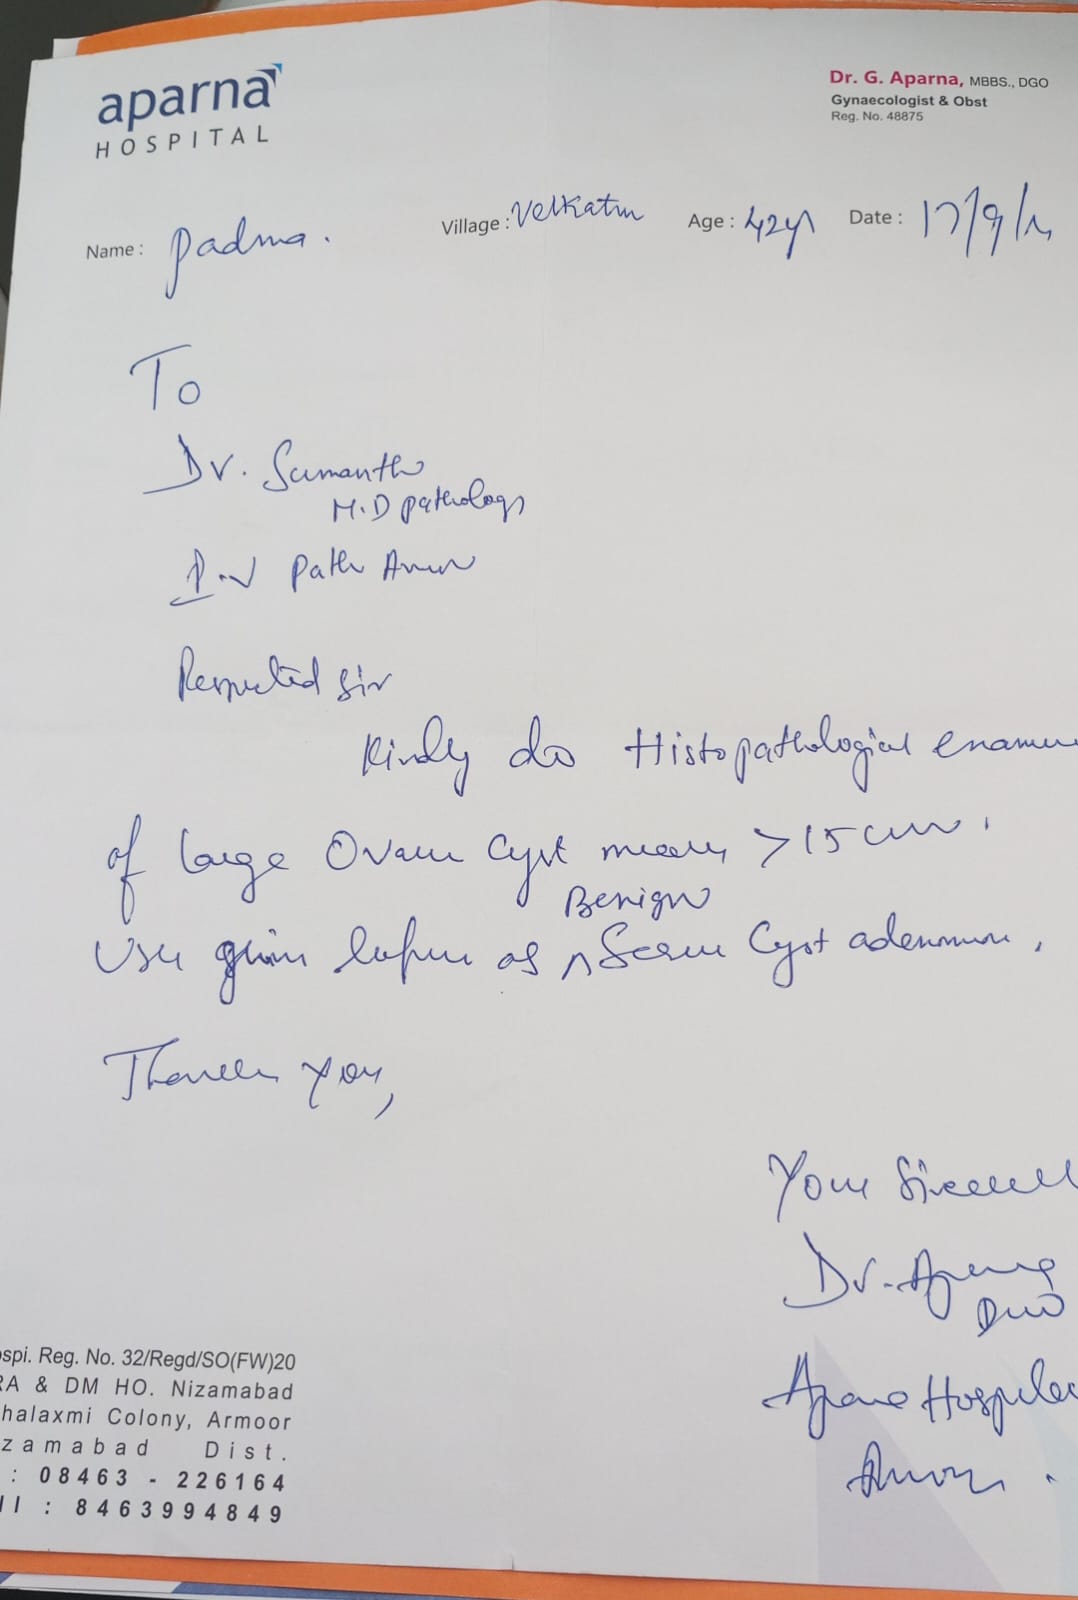 aparna
HOSPITAL
Dr. G. Aparna, MBBS., DGO
Gynaecologist & Obst
Reg. No. 48875
Name : Padma.
Village : Velkatur
Age : 42yr
Date : 17/9/
To
Dr. Sumanth
M.D pathology
Path
Respected Sir
Kindly do Histopathological
of large Ovarian Cyst >15 cm.
given as Benign Serous Cyst adenoma.
Thank you,
Your Sincerely
Dr. Aparna
DGO
Aparna Hospital
Armoor.
ospi. Reg. No. 32/Regd/SO(FW)20
RA & DM HO. Nizamabad
halaxmi Colony, Armoor
zamabad Dist.
: 08463 - 226164
ll : 8463994849